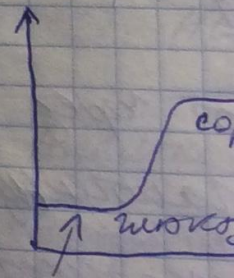 со
глюкоз